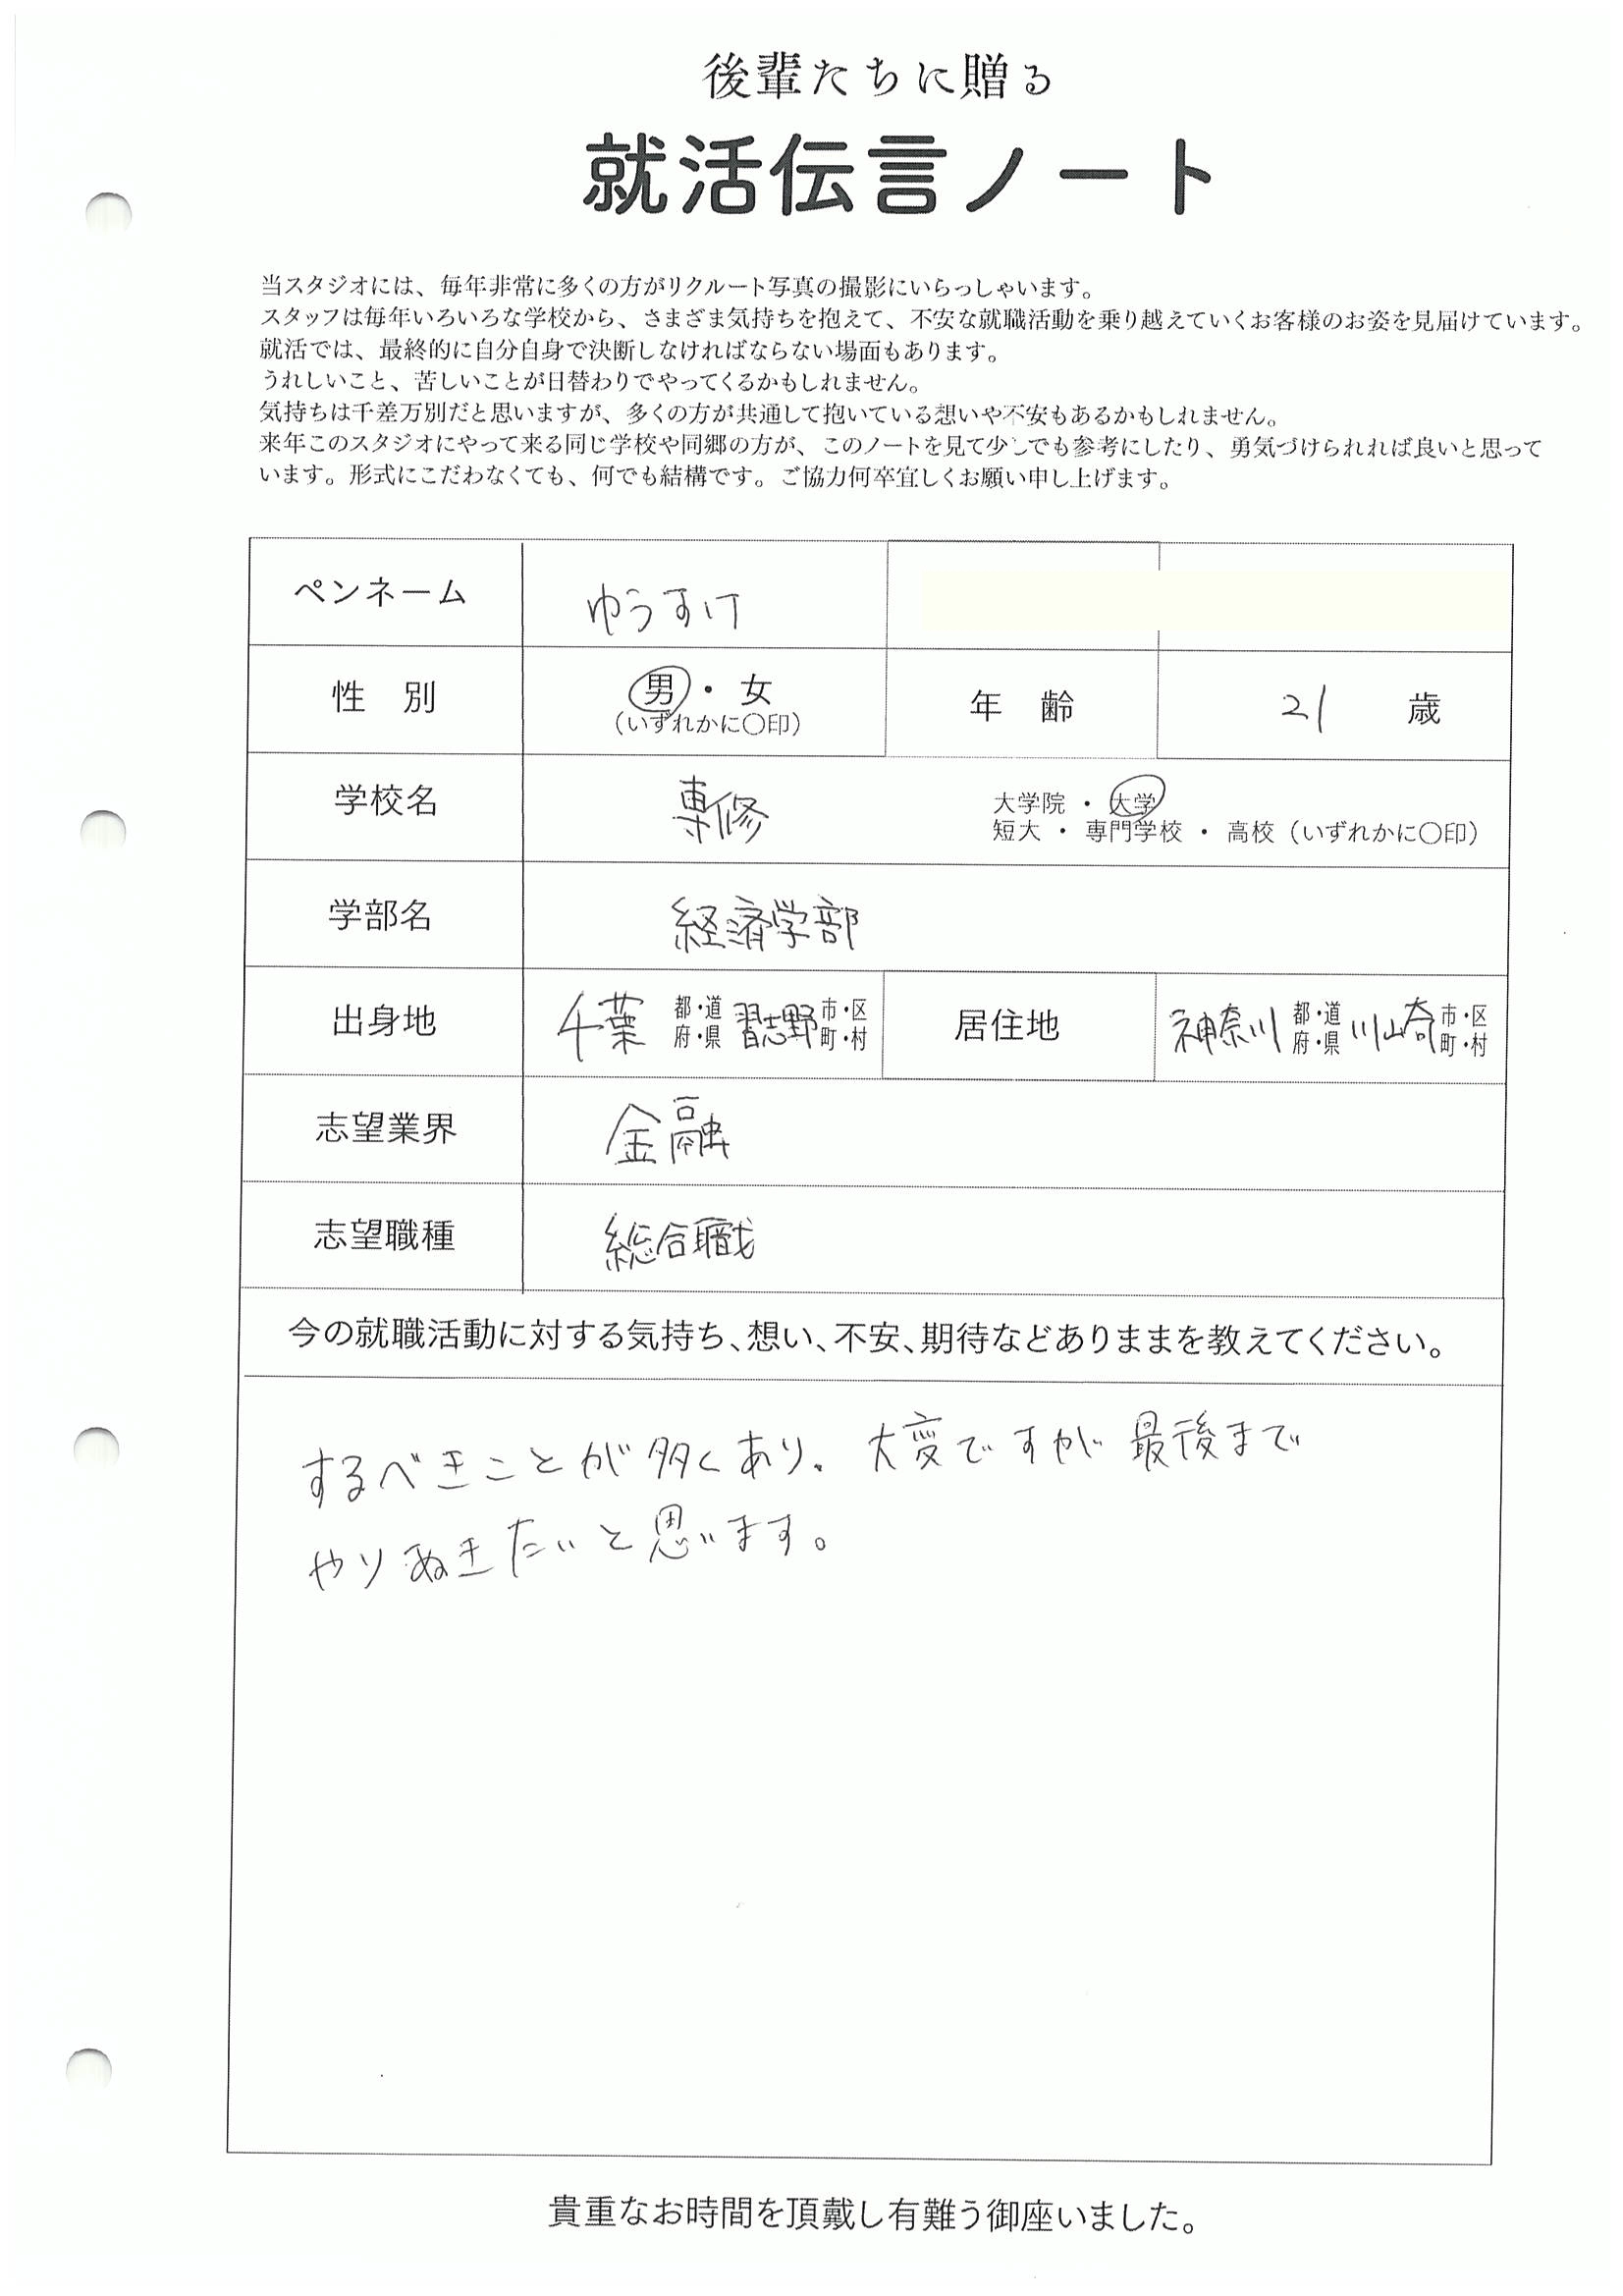 後輩たちに贈る
就活伝言ノート
当スタジオには、毎年非常に多くの方がリクルート写真の撮影にいらっしゃいます。
スタッフは毎年いろいろな学校から、さまざま気持ちを抱えて、不安な就職活動を乗り越えていくお客様のお姿を見届けています。
就活では、最終的に自分自身で決断しなければならない場面もあります。
うれしいこと、苦しいことが日替わりでやってくるかもしれません。
気持ちは千差万別だと思いますが、多くの方が共通して抱いている想いや不安もあるかもしれません。
来年このスタジオにやって来る同じ学校や同郷の方が、このノートを見て少しでも参考にしたり、勇気づけられれば良いと思って
います。形式にこだわなくても、何でも結構です。ご協力何卒宜しくお願い申し上げます。
ペンネーム ゆうすけ
性 別 男・女 年 齢 21 歳
(いずれかに〇印)
学校名 専修 大学院・大学
短大・専門学校・高校(いずれかに〇印)
学部名 経済学部
出身地 千葉 都・道 府・県 習志野 市・区 町・村 居住地 神奈川 都・道 府・県 川崎 市・区 町・村
志望業界 金融
志望職種 総合職
今の就職活動に対する気持ち、想い、不安、期待などありままを教えてください。
するべきことが多くあり、大変ですが最後まで
やりぬきたいと思います。
貴重なお時間を頂戴し有難う御座いました。